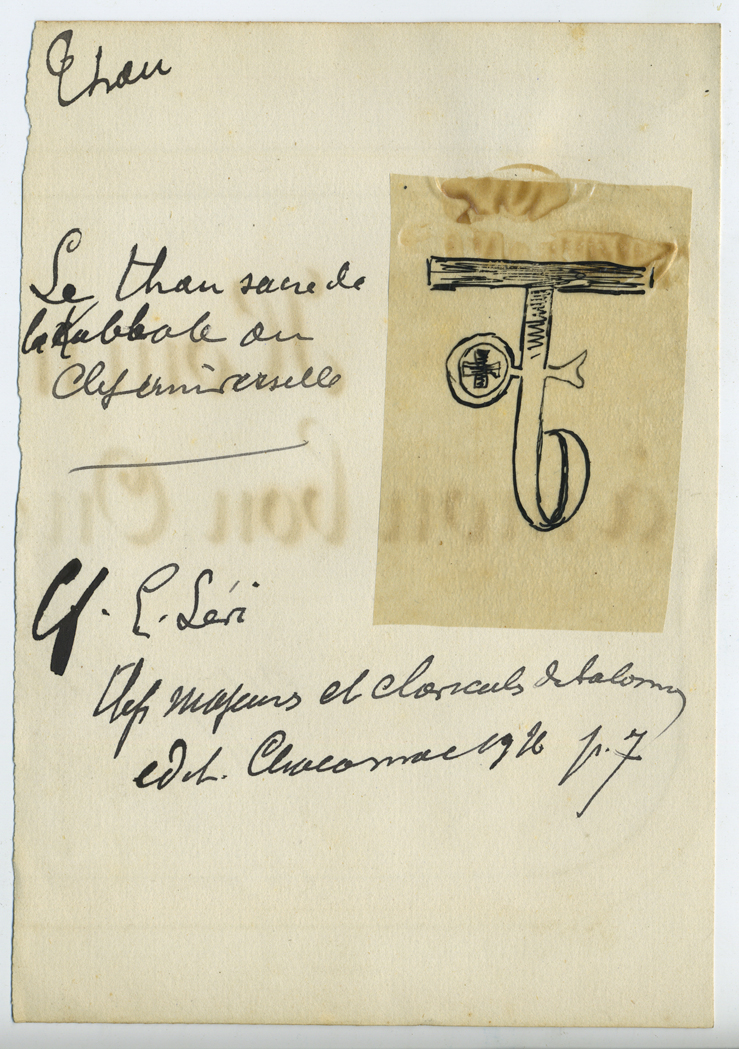 Thau
Le thau sacre de
la Kabbale ou
Clef universelle
Cf. E. Lévi
Clefs majeurs et clavicules de Salomon
edit. Chacornac 1926 p. 7